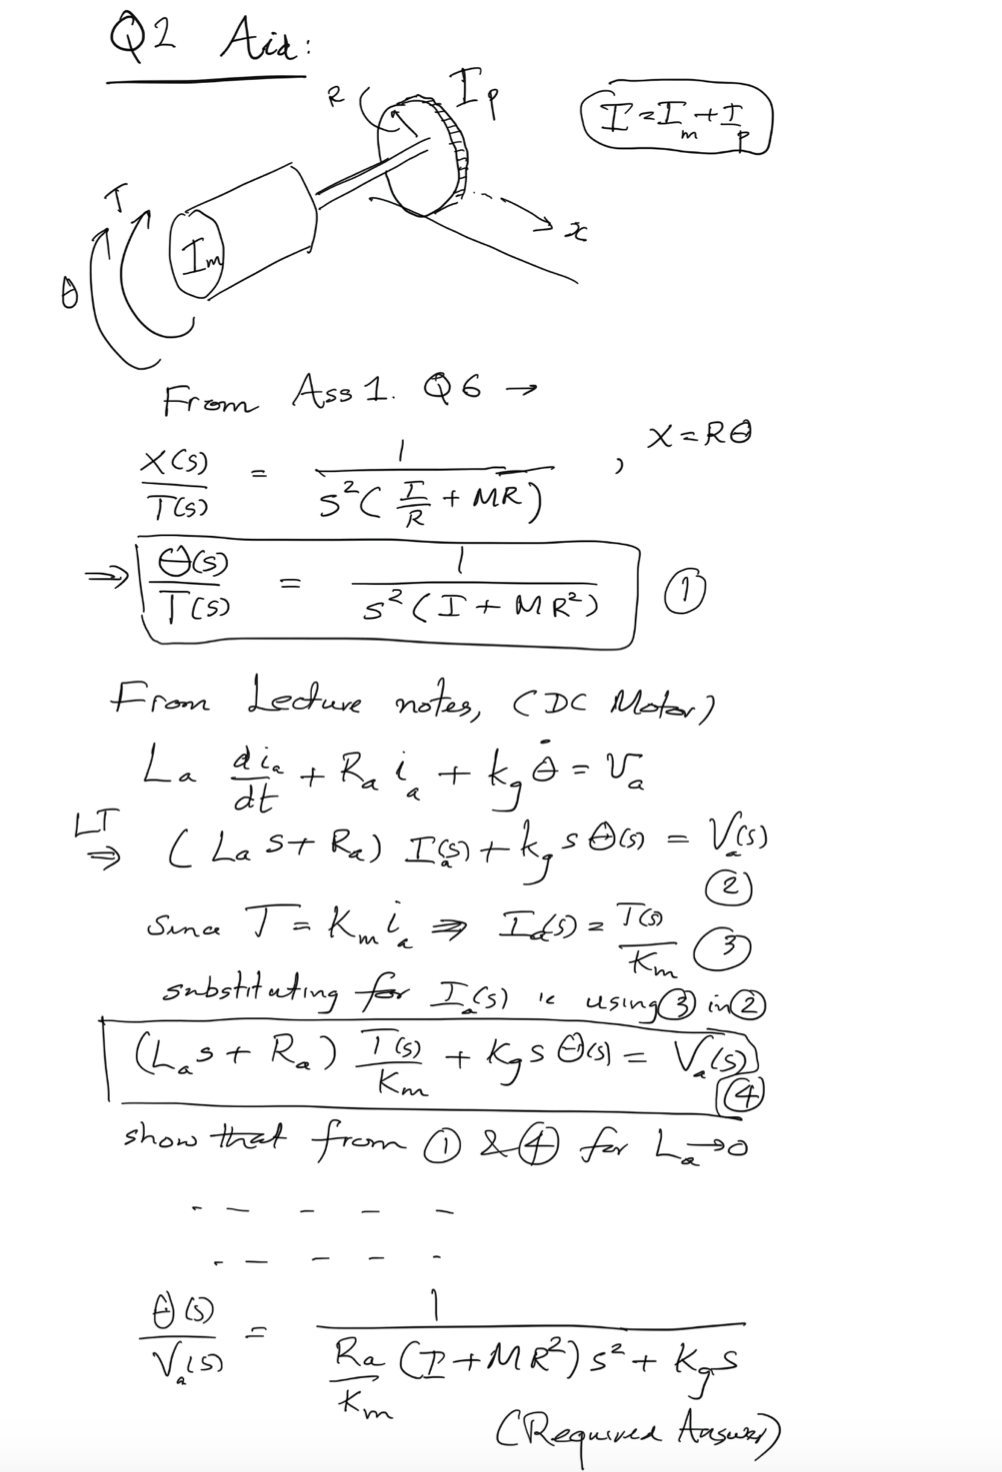 Q2 Aid:
R
I_p
I = I_m + I_p
T
I_m
θ
x
From Ass 1. Q6 →
X(s)/T(s) = 1/(s²(I/R + MR)) , X = Rθ
⇒ Θ(s)/T(s) = 1/(s²(I + MR²)) ①
From Lecture notes, (DC Motor)
L_a di_a/dt + R_a i_a + k_g θ̇ = V_a
LT
⇒ (L_a s + R_a) I_a(s) + k_g s Θ(s) = V_a(s)
②
Since T = K_m i_a ⇒ I_a(s) = T(s)/K_m ③
substituting for I_a(s) ie using ③ in ②
(L_a s + R_a) T(s)/K_m + K_g s Θ(s) = V_a(s)
④
show that from ① & ④ for L_a → 0
- - - - -
- - - - -
θ(s)/V_a(s) = 1/(R_a/K_m (I + MR²) s² + K_g s)
(Required Answer)